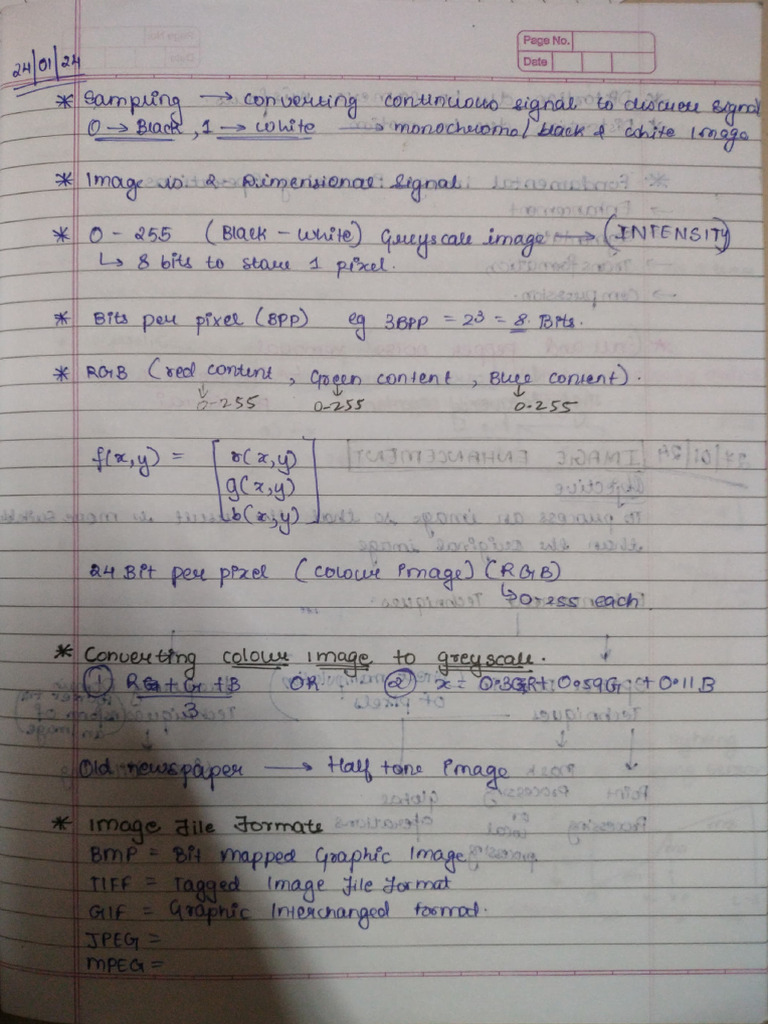 Page No.
Date
24/01/24
* Sampling → converting continuous signal to discrete signal
0 → Black, 1 → White → monochrome/black & white Image
* Image is 2 Dimensional Signal
* 0-255 (Black-White) Greyscale image → (INTENSITY)
↳ 8 bits to store 1 pixel.
* Bits per pixel (BPP) eg 3BPP = 2³ = 8 Bits.
* RGB (red content, Green content, Blue content).
↓ 0-255 ↓ 0-255 ↓ 0-255
f(x,y) = [r(x,y)
g(x,y)
b(x,y)]
24 Bit per pixel (colour image) (RGB)
↳ 0-255 each.
* Converting colour image to greyscale.
① R+G+B OR ② x = 0.3R + 0.59G + 0.11B
3
Old newspaper → Half tone Image
* Image File Formate
BMP = Bit Mapped Graphic Image
TIFF = Tagged Image File Format
GIF = Graphic Interchanged format.
JPEG =
MPEG =